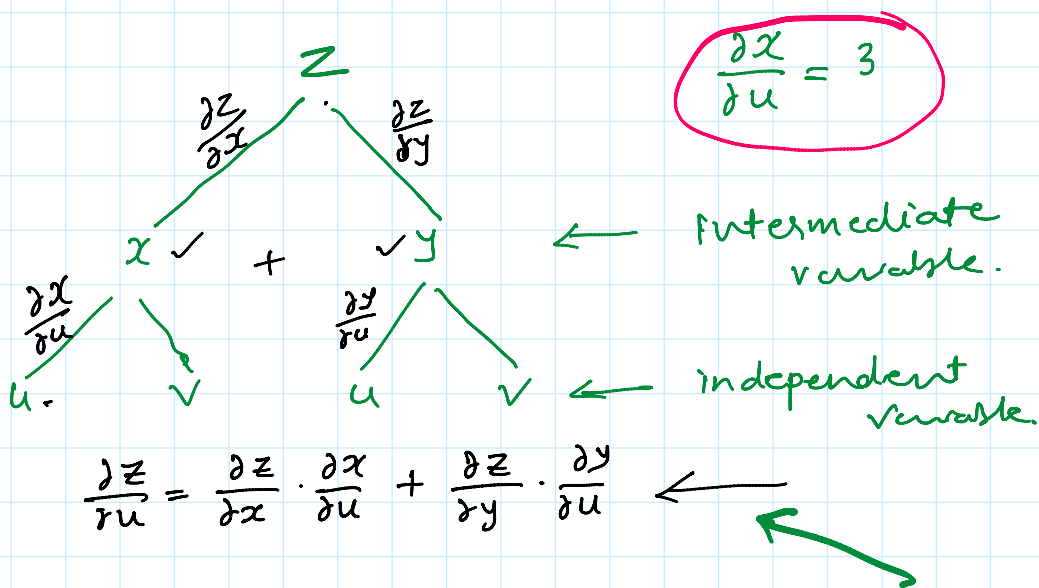 Z
∂x/∂u = 3
∂z/∂x ∂z/∂y
x ✓ + ✓ y ← intermediate
variable.
∂x/∂u ∂y/∂u
u. v u v ← independent
variable.
∂z/∂u = ∂z/∂x · ∂x/∂u + ∂z/∂y · ∂y/∂u ←